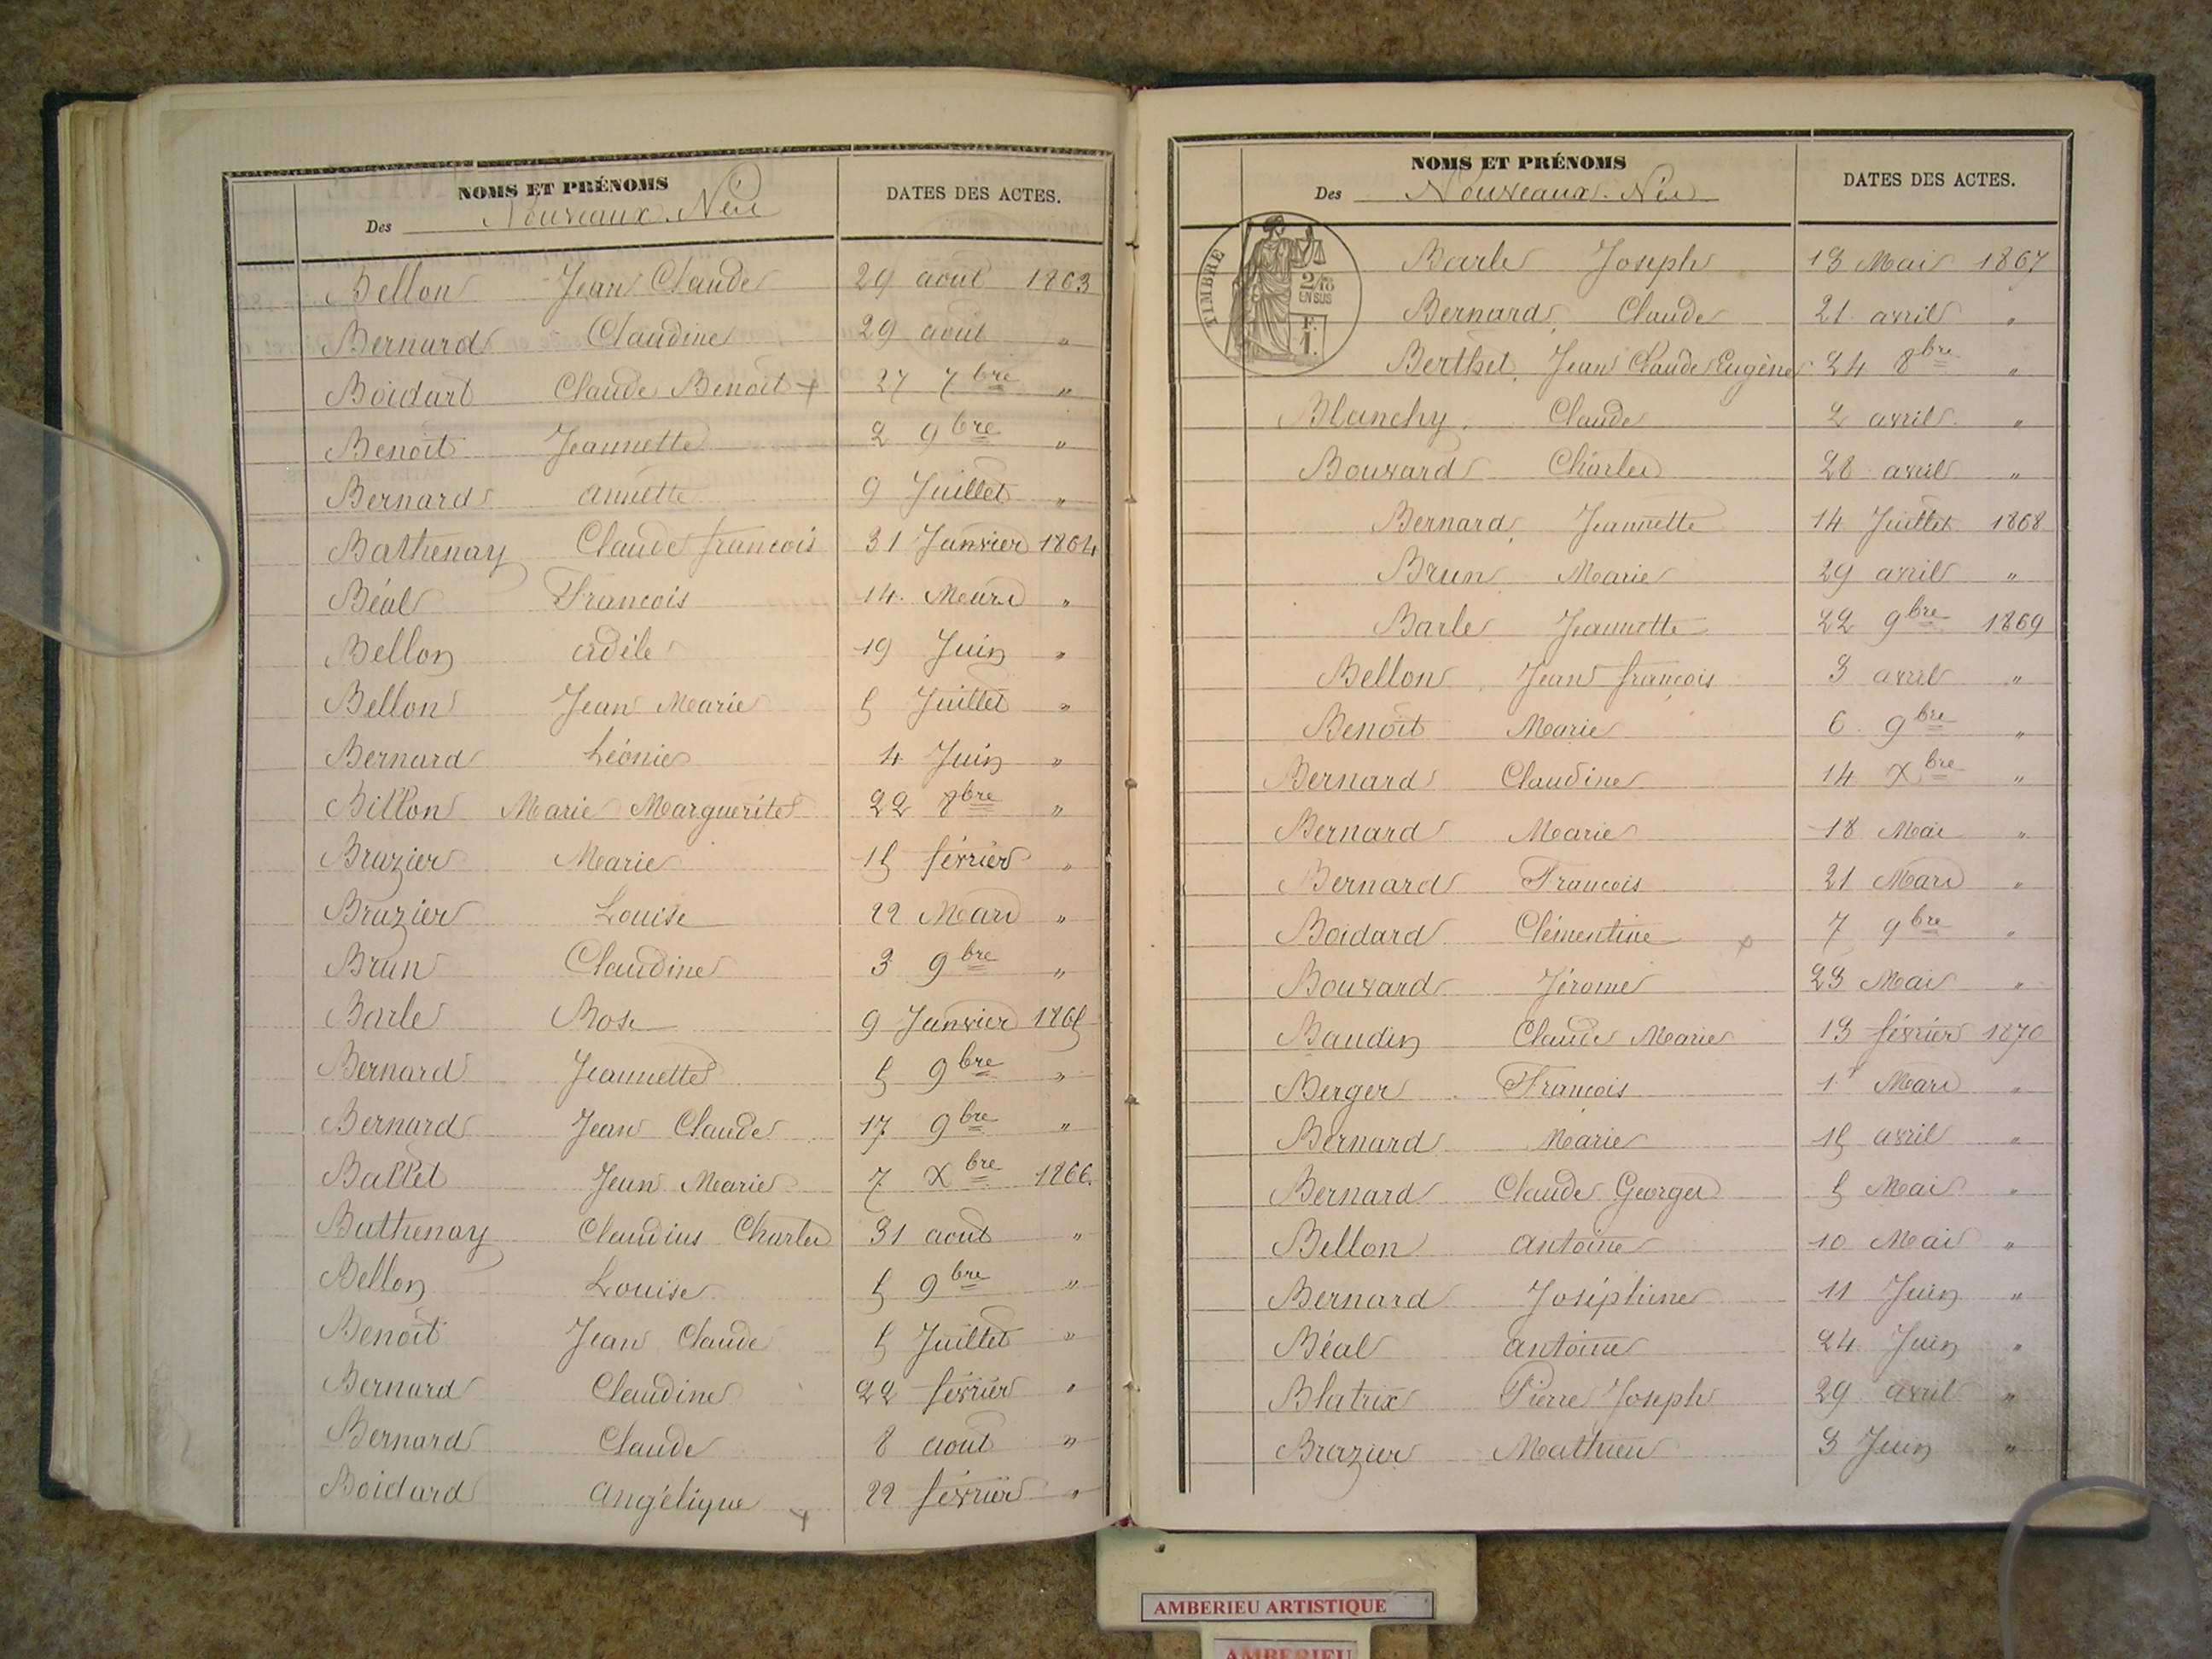 NOMS ET PRÉNOMS
Des Nouveaux-Nés
DATES DES ACTES.
Bellon Jean Claude 29 aout 1863
Bernard Claudine 29 aout "
Boidard Claude Benoit + 27 7bre "
Benoit Jeannette 2 9bre "
Bernard annette 9 Juillet "
Bathenay Claude françois 31 Janvier 1864
Béal François 14 Mars "
Bellon adèle 19 Juin "
Bellon Jean Marie 5 Juillet "
Bernard Léonie 4 Juin "
Billon Marie Marguerite 22 8bre "
Brazier Marie 15 février "
Brazier Louise 22 Mars "
Brun Claudine 3 9bre "
Barle Rose 9 Janvier 1865
Bernard Jeannette 5 9bre "
Bernard Jean Claude 17 9bre "
Ballet Jean Marie 7 Xbre 1866.
Bathenay Claudius Charles 31 aout "
Bellon Louise 5 9bre "
Benoit Jean Claude 5 Juillet "
Bernard Claudine 22 février "
Bernard Claude 8 aout "
Boidard angélique + 22 février "
NOMS ET PRÉNOMS
Des Nouveaux-Nés
DATES DES ACTES.
TIMBRE
2/10
EN SUS
F.
1.
Barle Joseph 13 Mai 1867
Bernard Claude 21 avril "
Berthet Jean Claude Eugène 24 8bre "
Blanchy Claude 2 avril "
Bouvard Charles 28 avril "
Bernard Jeannette 14 Juillet 1868
Brun Marie 29 avril "
Barle Jeannette 22 9bre 1869
Bellon Jean françois 3 avril "
Benoit Marie 6 9bre "
Bernard Claudine 14 Xbre "
Bernard Marie 18 Mai "
Bernard François 21 Mars "
Boidard Clémentine + 7 9bre "
Bouvard Jérome 23 Mai "
Baudin Claude Marie 13 février 1870
Berger François 1r Mars "
Bernard Marie 15 avril "
Bernard Claude Georges 5 Mai "
Bellon antoine 10 Mai "
Bernard Joséphine 11 Juin "
Béal antoine 24 Juin "
Blatrix Pierre Joseph 29 avril "
Brazier Mathieu 3 Juin "
AMBERIEU ARTISTIQUE
AMBERIEU